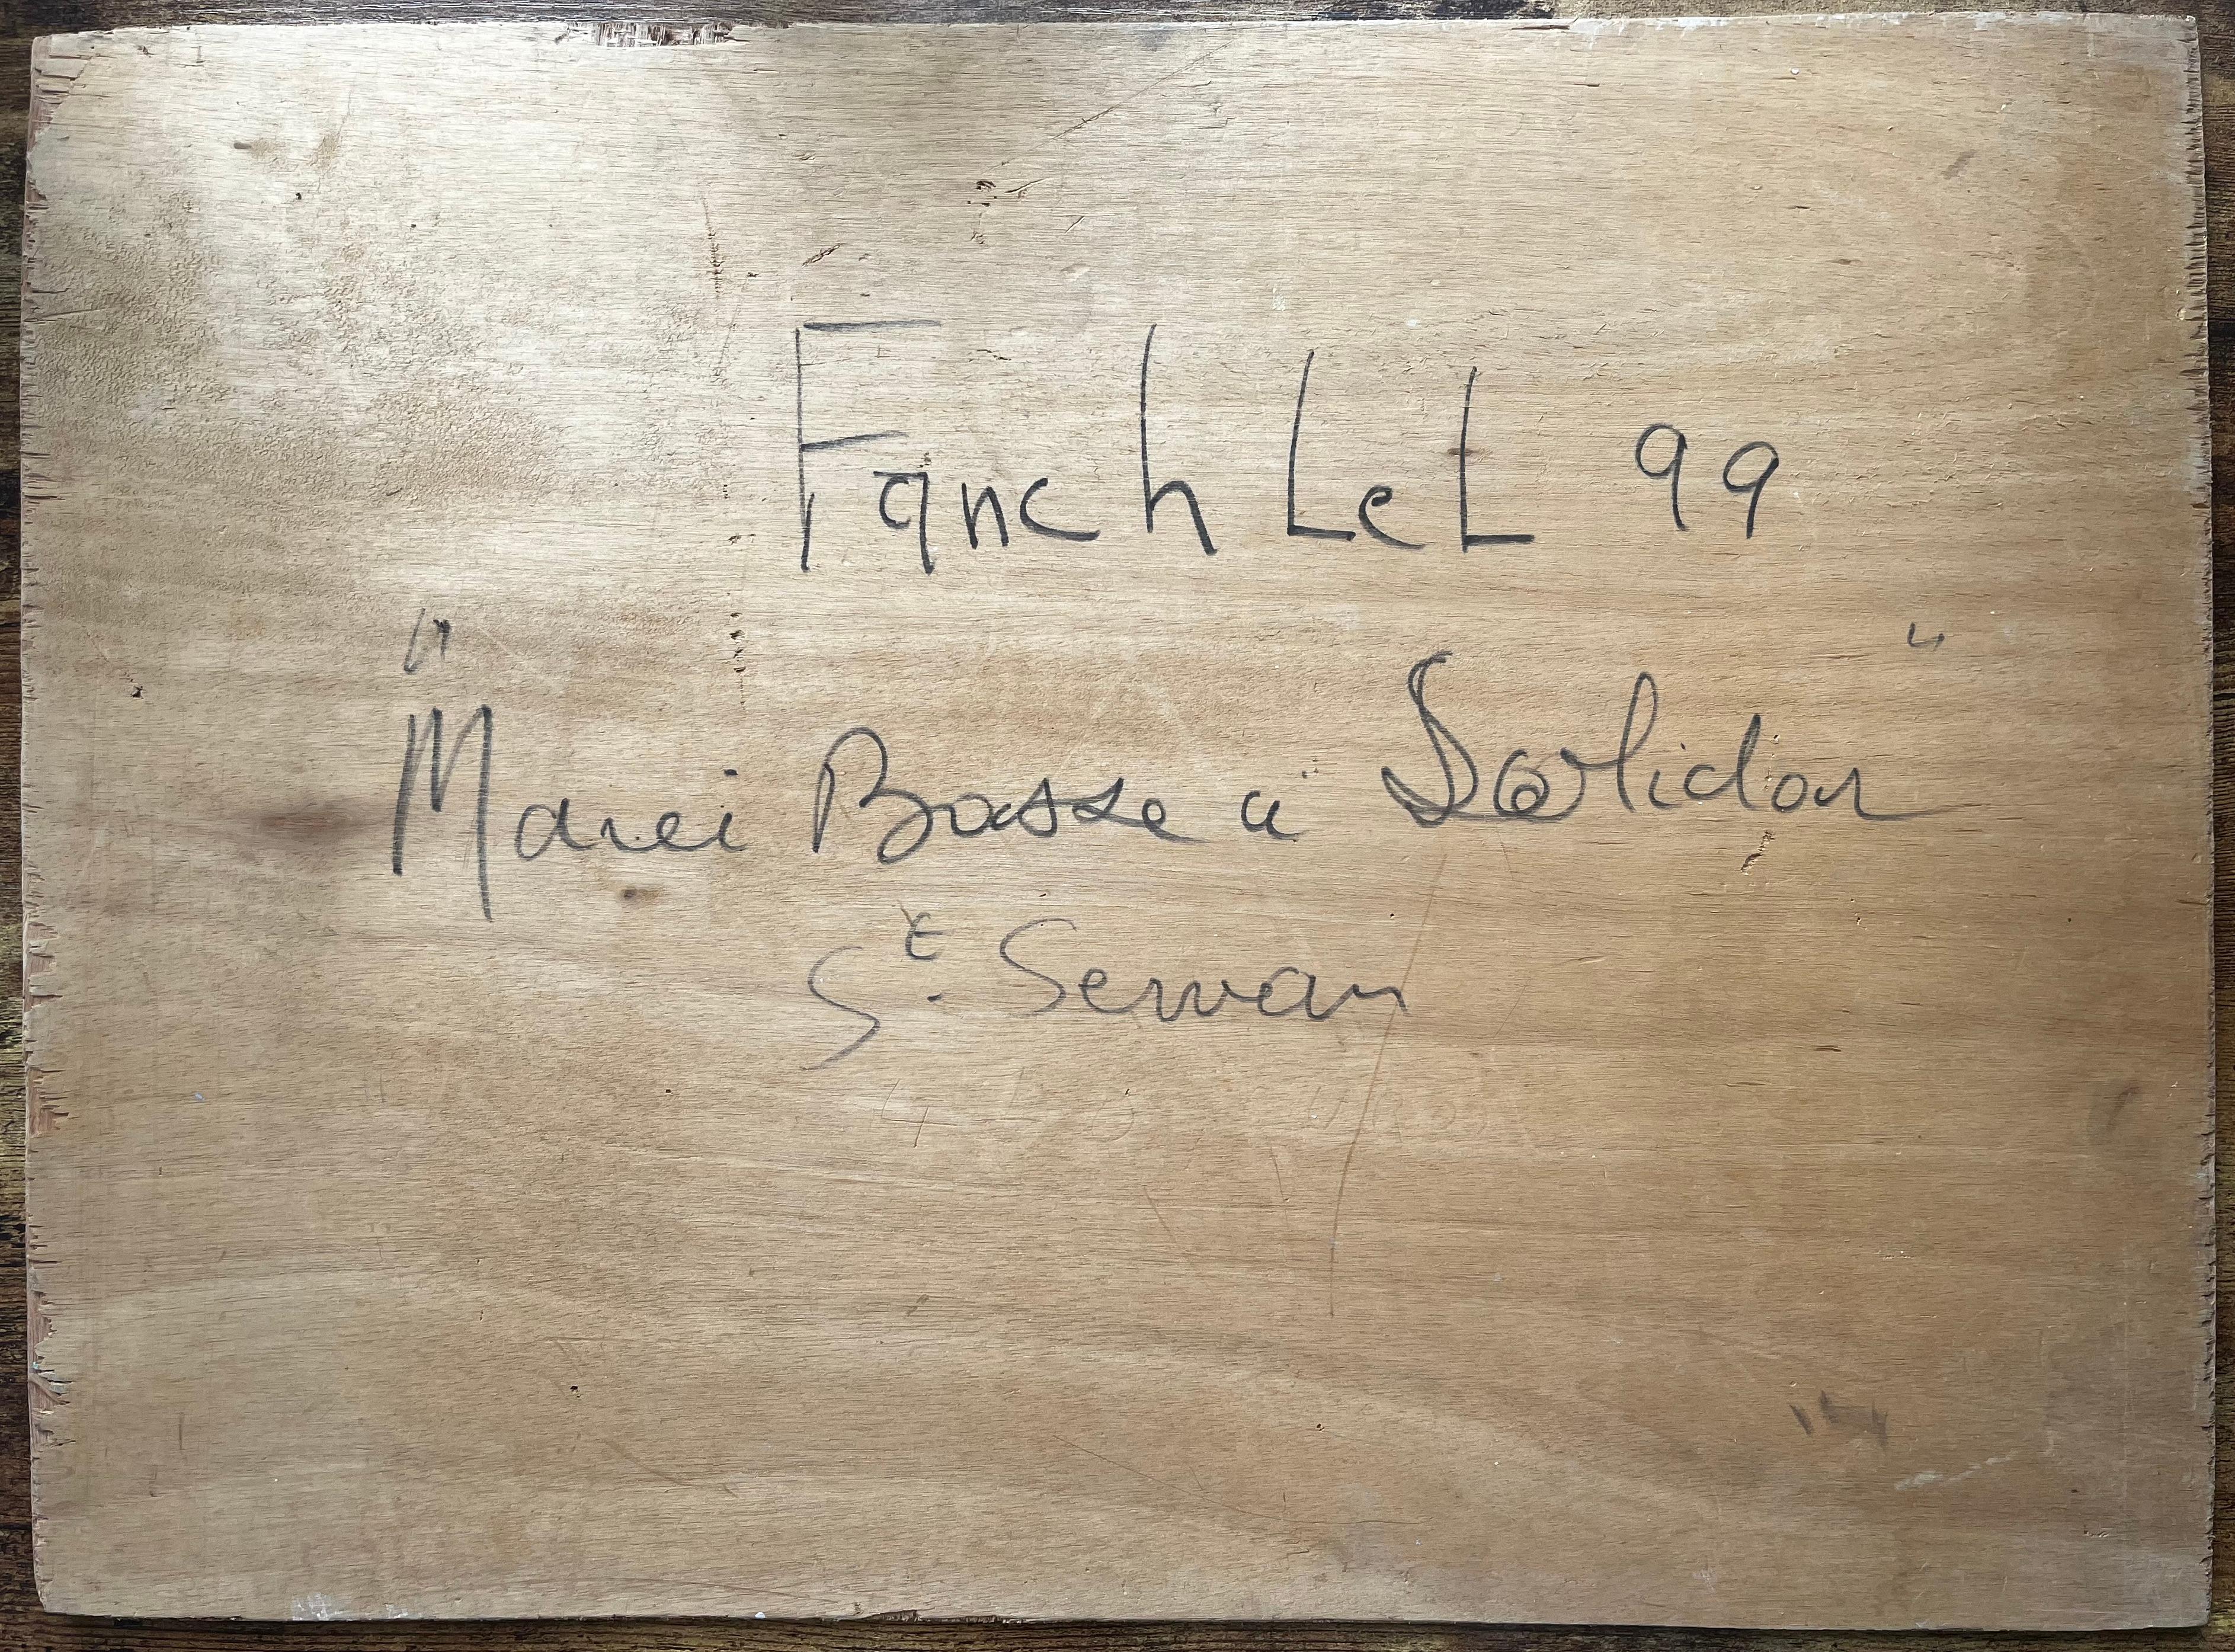 Fanch LeL 99
"Marei Basse a Solidor"
St. Servan